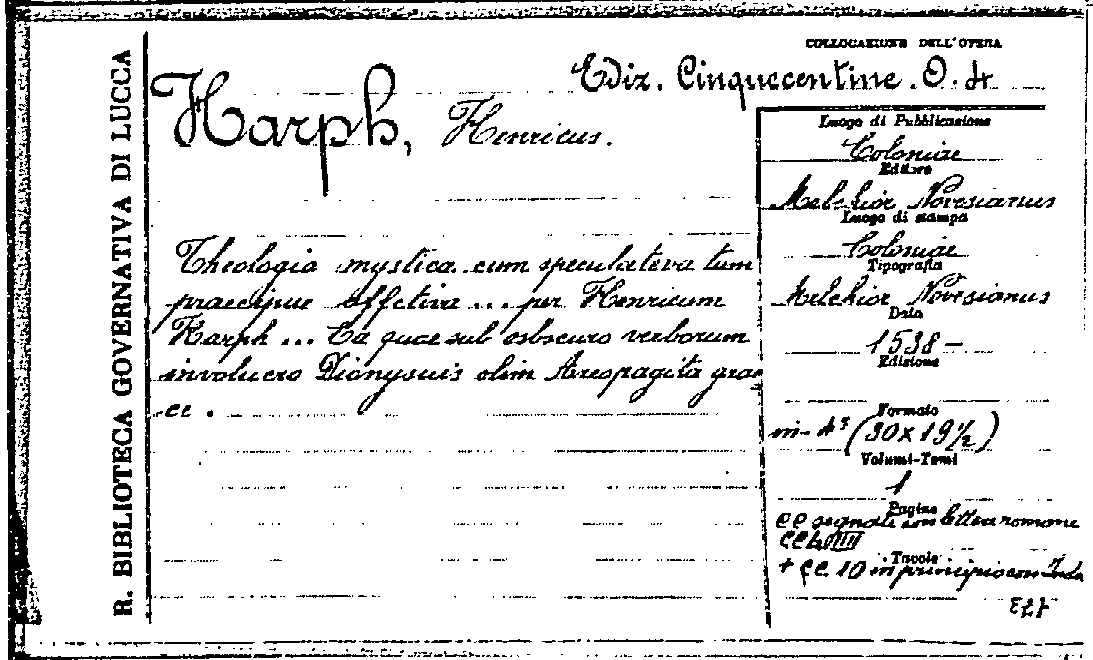 R. BIBLIOTECA GOVERNATIVA DI LUCCA
COLLOCAZIONE DELL'OPERA
Ediz. Cinquecentine. O. 4
Harph, Henricus.
Theologia mystica cum speculateva tum
praecipue affetiva ... per Henricum
Harph ... Ea quae sub osbscuro verborum
involucro Dionysuis olim Areopagita grae
ce.
Luogo di Pubblicazione
Coloniae
Editore
Melchior Novesianus
Luogo di stampa
Coloniae
Tipografia
Melchior Novesianus
Data
1538-
Edizione
Formato
in-4º (30x19½)
Volumi-Tomi
1
Pagine
cc segnate con lettera romane
Tavole
+ cc 10 in principio con